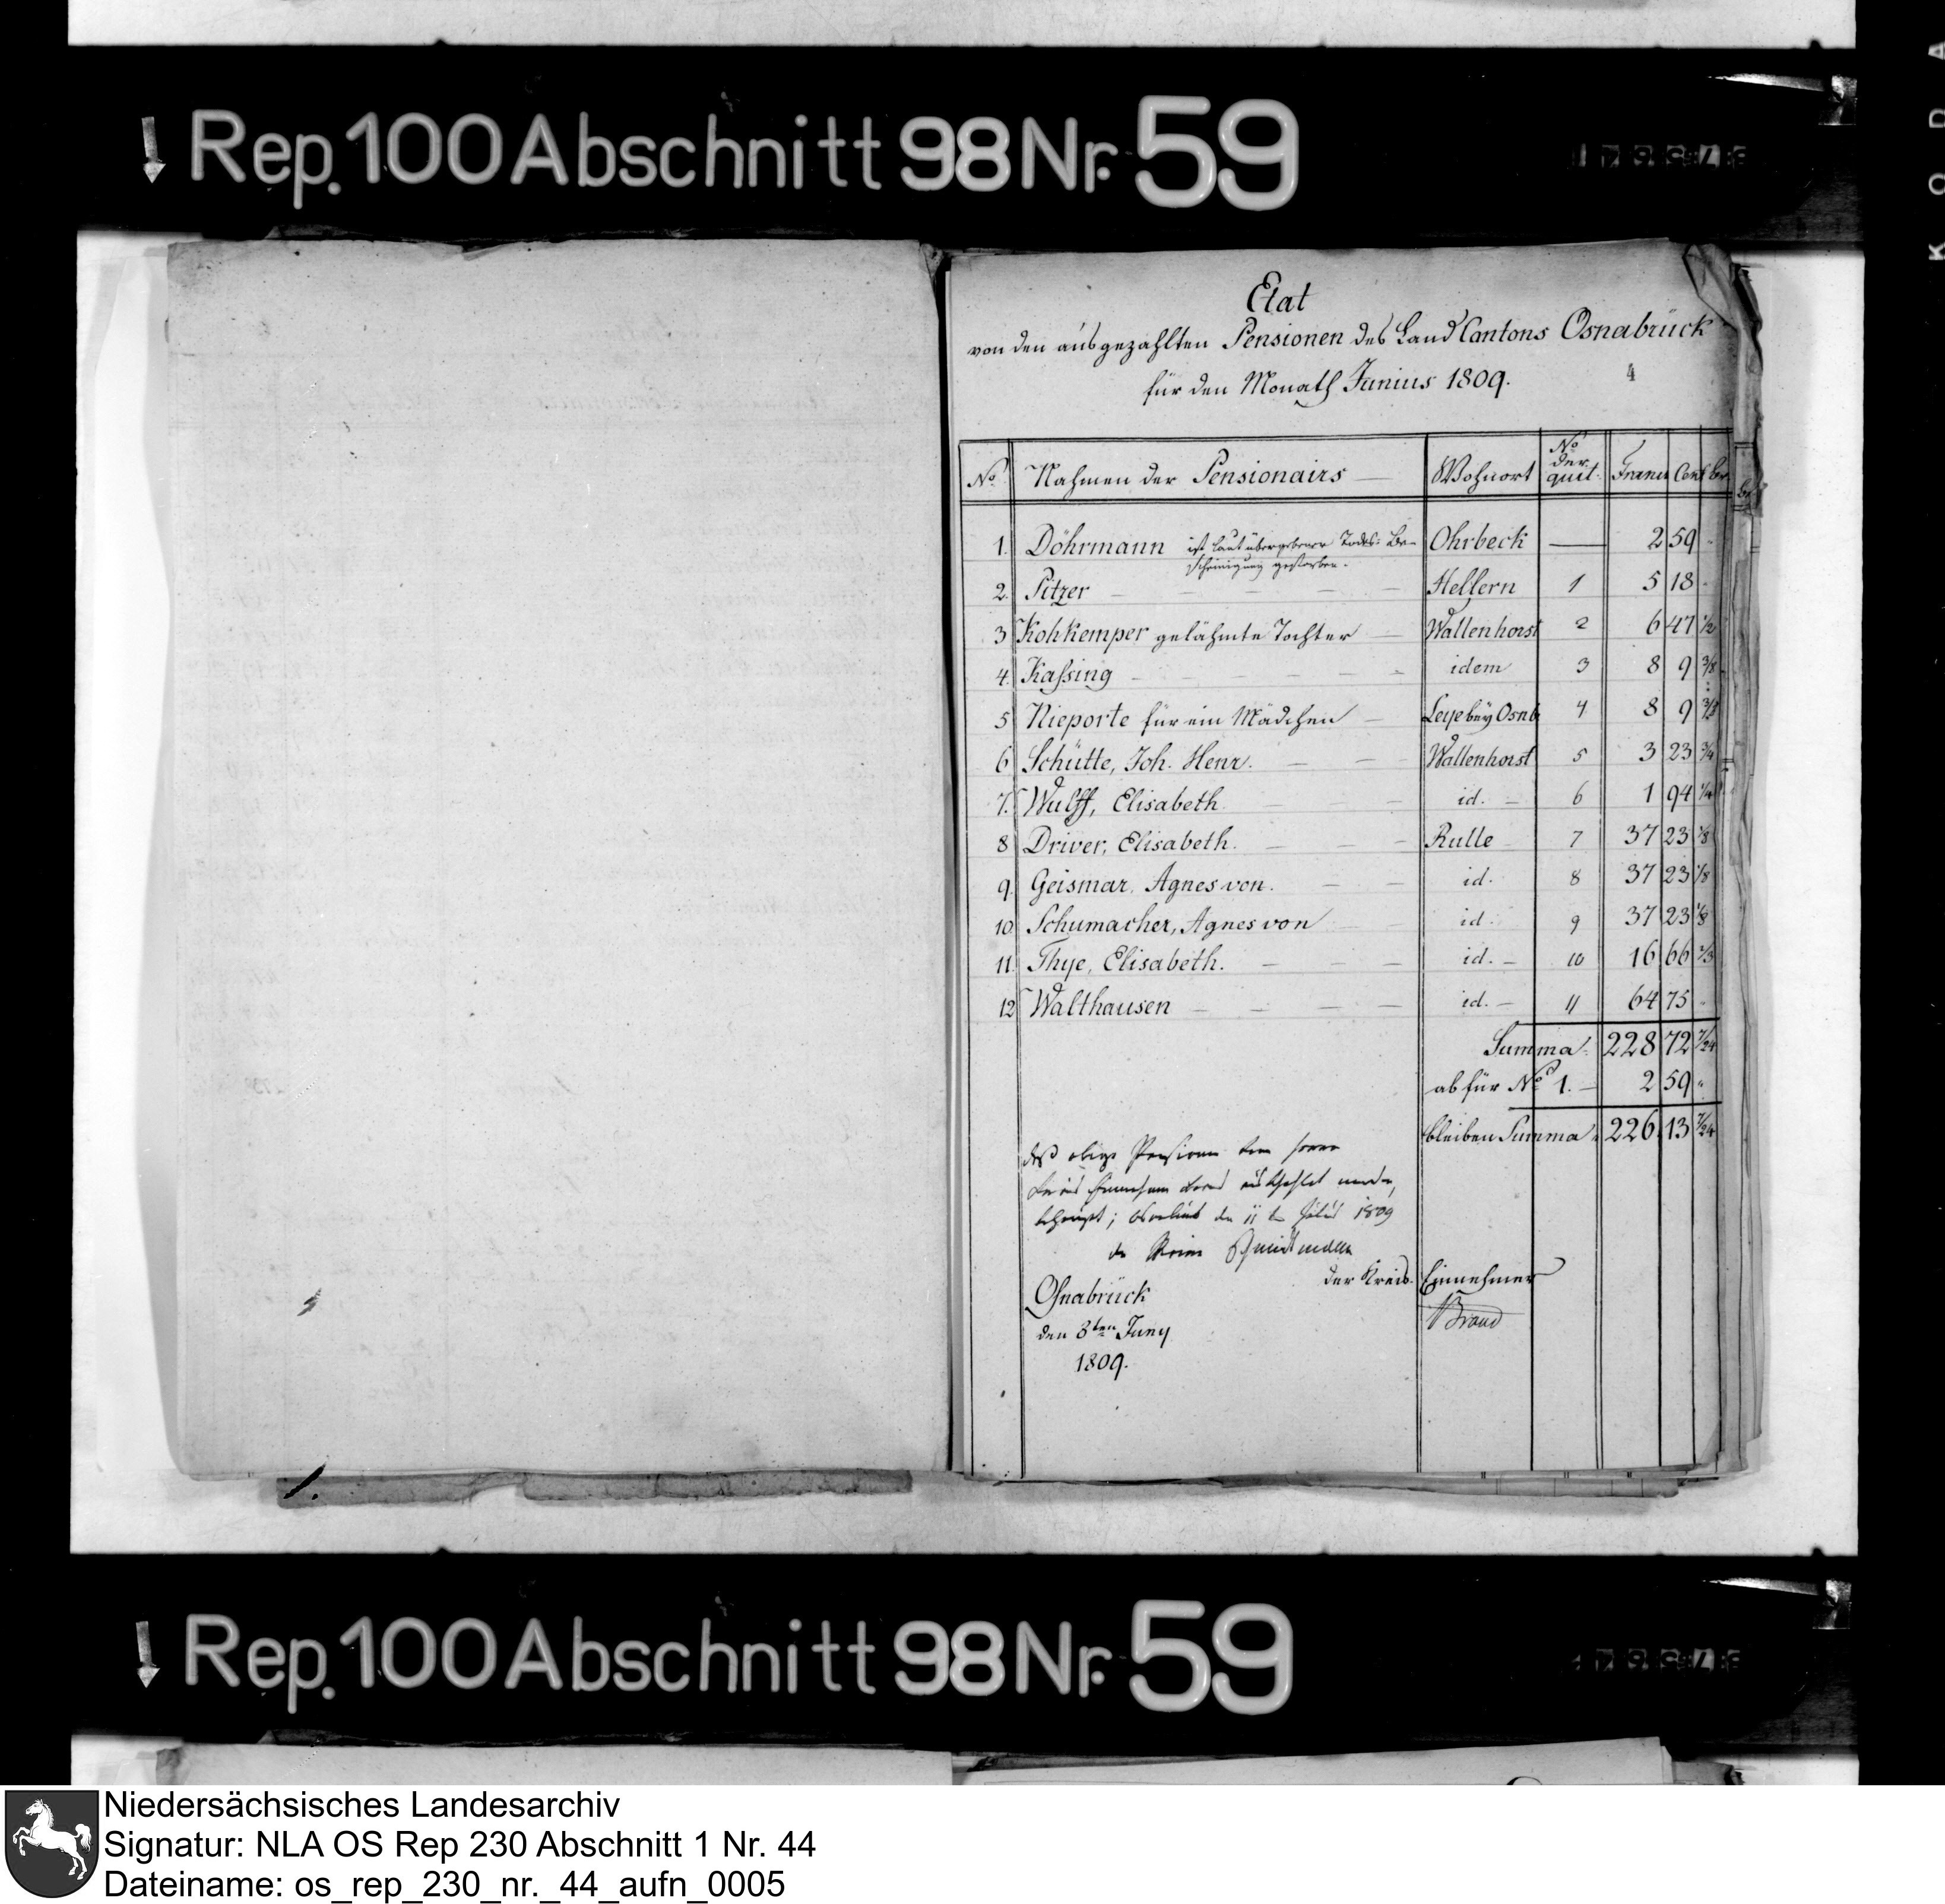 Rep. 100 Abschnitt 98 Nr. 59
Etat
von den ausgezahlten Pensionen des Land Cantons Osnabrück
für den Monath Junius 1809.
4
No. Nahmen der Pensionairs Wohnort No der quit. Francs Cent
1. Döhrmann ist laut übergebener Todes-Be- Ohrbeck — 2 59
scheinigung gestorben.
2. Pitzer Hellern 1 5 18
3 Kohkemper gelähmte Tochter Wallenhorst 2 6 47 1/2
4. Kaßing idem 3 8 9 3/8
5 Nieporte für ein Mädchen Leye bey Osnb 4 8 9 3/8
6 Schütte, Joh. Henr. Wallenhorst 5 3 23 3/4
7. Wulff, Elisabeth id. 6 1 94 1/4
8 Driver, Elisabeth. Rulle 7 37 23 1/8
9. Geismar, Agnes von. id. 8 37 23 1/8
10. Schumacher, Agnes von id. 9 37 23 1/8
11. Thye, Elisabeth. id. 10 16 66 2/3
12 Walthausen id. 11 64 75
Summa 228 72 7/24
ab für No 1. 2 59
bleiben Summa 226 13 7/24
daß obige Pensionen
1809
der Kreis Einnehmer
Osnabrück
Brand
den 3ten Juny
1809.
1.
Rep. 100 Abschnitt 98 Nr. 59
Niedersächsisches Landesarchiv
Signatur: NLA OS Rep 230 Abschnitt 1 Nr. 44
Dateiname: os_rep_230_nr._44_aufn_0005